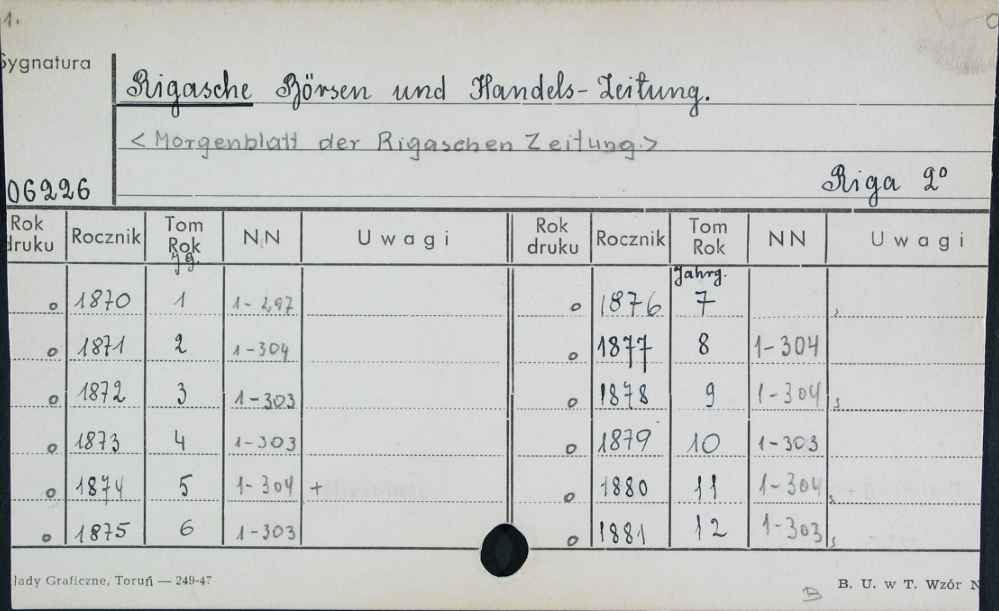 1.
Sygnatura
Rigasche Börsen und Handels-Zeitung.
<Morgenblatt der Rigaschen Zeitung.>
06226
Riga 2°
Rok druku Rocznik Tom Rok NN Uwagi Rok druku Rocznik Tom Rok NN Uwagi
Jg. Jahrg.
o 1870 1 1-297 o 1876 7
o 1871 2 1-304 o 1877 8 1-304
o 1872 3 1-303 o 1878 9 1-304
o 1873 4 1-303 o 1879 10 1-303
o 1874 5 1-304 + o 1880 11 1-304
o 1875 6 1-303 o 1881 12 1-303
łady Graficzne, Toruń — 249-47
B
B. U. w T. Wzór N